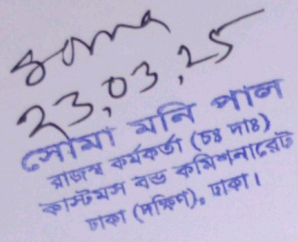 Soma
23.03.25
সোমা মনি পাল
রাজস্ব কর্মকর্তা (চঃ দাঃ)
কাস্টমস বন্ড কমিশনারেট
ঢাকা (দক্ষিণ), ঢাকা।